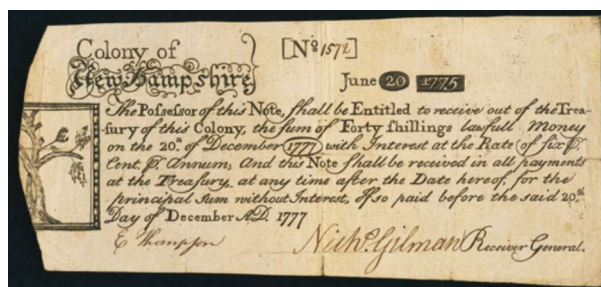 Colony of [No 1572]
New Hampshire
June 20 1775
The Possessor of this Note, shall be Entitled to receive out of the Trea-
sury of this Colony, the sum of Forty shillings lawfull Money
on the 20th of December 1777 with Interest at the Rate of six P.
Cent. P. Annum; And this Note shall be received in all payments
at the Treasury, at any time after the Date hereof, for the
principal Sum without Interest, If so paid before the said 20th
Day of December A.D. 1777
E Thompson Nichs. Gilman Receiver General.